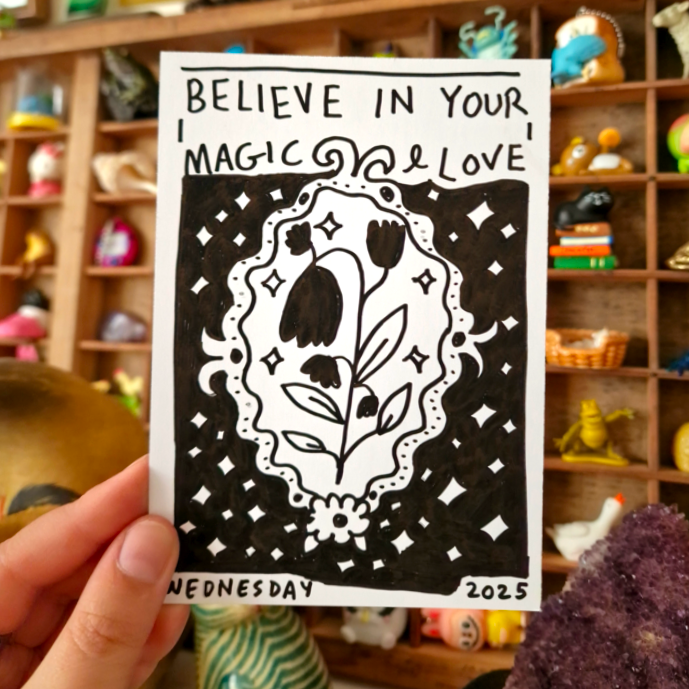 BELIEVE IN YOUR
MAGIC & LOVE
WEDNESDAY 2025